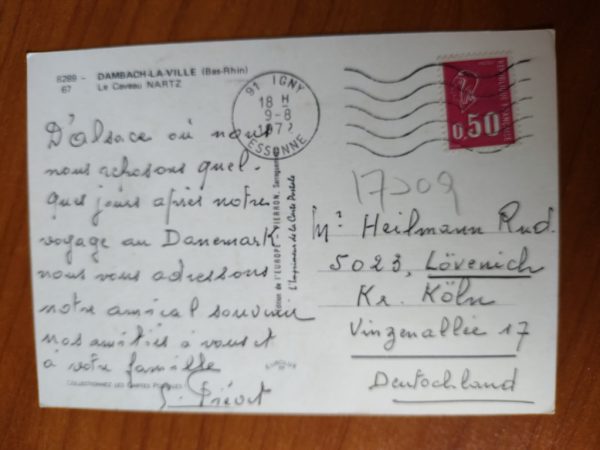 6289 - DAMBACH-LA-VILLE (Bas-Rhin)
67 Le Caveau NARTZ
91 IGNY
18 H
9-8
ESSONNE
0,50
D'Alsace où nous
nous reposons quel-
ques jours après notre
voyage au Danemark
nous vous adressons
notre amical souvenir
nos amitiés à vous et
à votre famille
G. Prévot
COLLECTIONNEZ LES CARTES POSTALES
EUROLUX
Edition de l'EUROPE - PIERRON, Sarreguemines
L'Imprimeur de la Carte Postale
17209
Mr Heilmann Rud.
5023, Lövenich
Kr. Köln
Vinzenallée 17
Deutschland